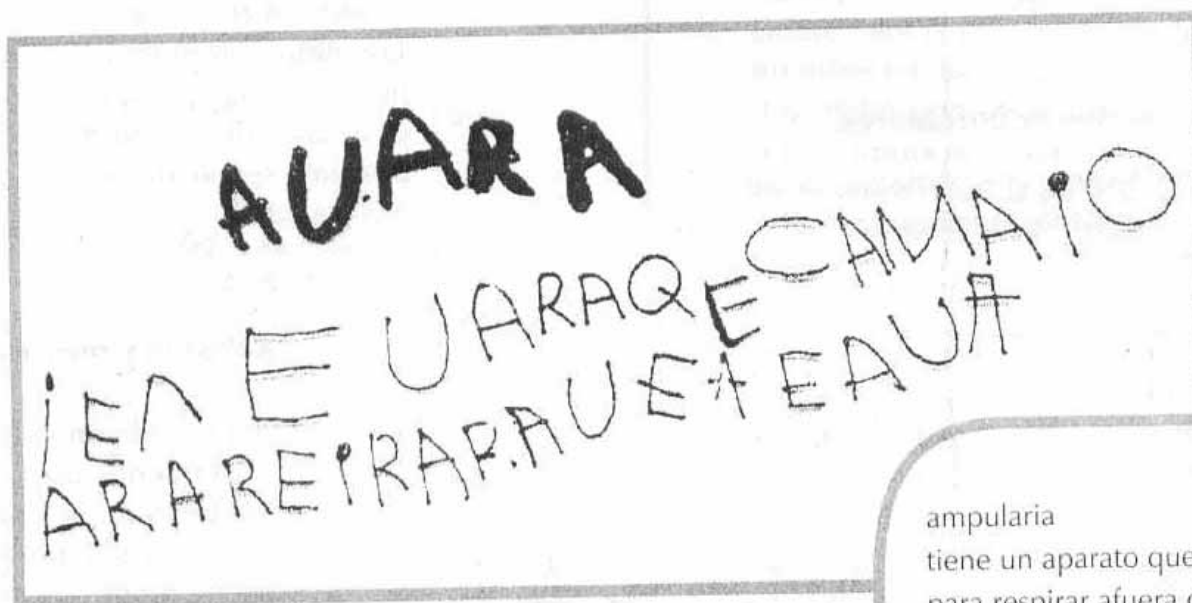 AUARA
iEN E UARAQE CAMAIO
ARAREIRARAUEAEAUA
ampularia
tiene un aparato que
para respirar afuera